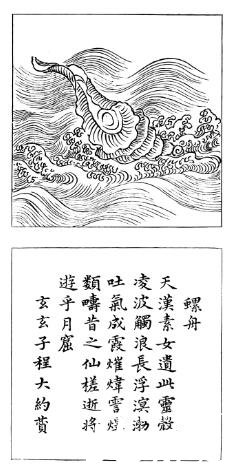 螺舟
天漢素女遺此靈殼
凌波觸浪長浮溟渤
吐氣成霞熣煒雪熒
類疇昔之仙槎逝將
遊乎月窟
玄玄子程大約贊